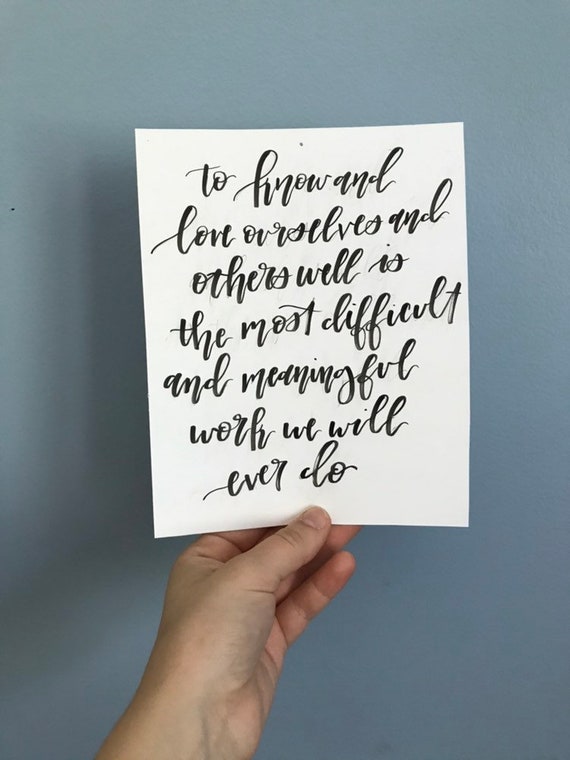 to know and
love ourselves and
others well is
the most difficult
and meaningful
work we will
ever do